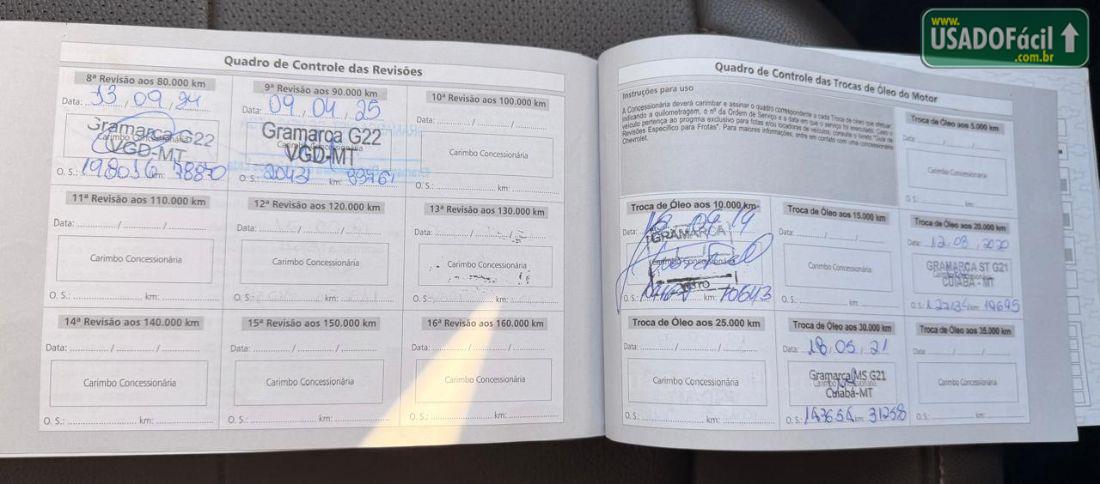 www.
USADOFácil
.com.br
Quadro de Controle das Revisões
8ª Revisão aos 80.000 km
Data: 13, 09, 24
Gramarca G22
VGD-MT
O. S.: 198036 km: 78870
9ª Revisão aos 90.000 km
Data: 09, 04, 25
Gramarca G22
VGD-MT
O. S.: 20431 km:
10ª Revisão aos 100.000 km
Data: / /
Carimbo Concessionária
O. S.: km:
11ª Revisão aos 110.000 km
Data: / /
Carimbo Concessionária
O. S.: km:
12ª Revisão aos 120.000 km
Data: / /
Carimbo Concessionária
O. S.: km:
13ª Revisão aos 130.000 km
Data: / /
Carimbo Concessionária
O. S.: km:
14ª Revisão aos 140.000 km
Data: / /
Carimbo Concessionária
O. S.: km:
15ª Revisão aos 150.000 km
Data: / /
Carimbo Concessionária
O. S.: km:
16ª Revisão aos 160.000 km
Data: / /
Carimbo Concessionária
O. S.: km:
Quadro de Controle das Trocas de Óleo do Motor
Instruções para uso
A Concessionária deverá carimbar e assinar o quadro correspondente a cada Troca de óleo que efetuar,
indicando a quilometragem, o nº da Ordem de Serviço e a data em que o serviço foi executado. Caso o
veículo pertença ao programa exclusivo para frotas e/ou locadoras de veículos, consulte o livreto "Guia de
Revisões Específico para Frotas". Para maiores informações, entre em contato com uma concessionária
Chevrolet.
Troca de Óleo aos 5.000 km
Data: / /
Carimbo Concessionária
O. S.: km:
Troca de Óleo aos 10.000 km
Data: 09 19
GRAMARCA
O. S.: km: 10643
Troca de Óleo aos 15.000 km
Data: / /
Carimbo Concessionária
O. S.: km:
Troca de Óleo aos 20.000 km
Data: 12, 03, 2020
GRAMARCA ST G21
CUIABÁ - MT
O. S.: km: 19695
Troca de Óleo aos 25.000 km
Data: / /
Carimbo Concessionária
O. S.: km:
Troca de Óleo aos 30.000 km
Data: 18, 05, 21
Gramarca MS G21
Cuiabá-MT
O. S.: 147654 km: 31258
Troca de Óleo aos 35.000 km
Data: / /
Carimbo Concessionária
O. S.: km: